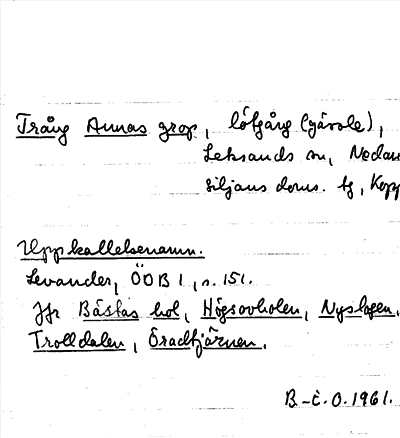 Trång Annas grop, lötgång (gävole),
Leksands sn, Nedan
siljans doms. tg, Kopp
Uppkallelsenamn.
Levander, ÖDB 1, s. 151.
Jfr Båstas hol, Högsovholen, Nyslogen,
Trolldalen, Öradtjärnen.
B-E.O. 1961.